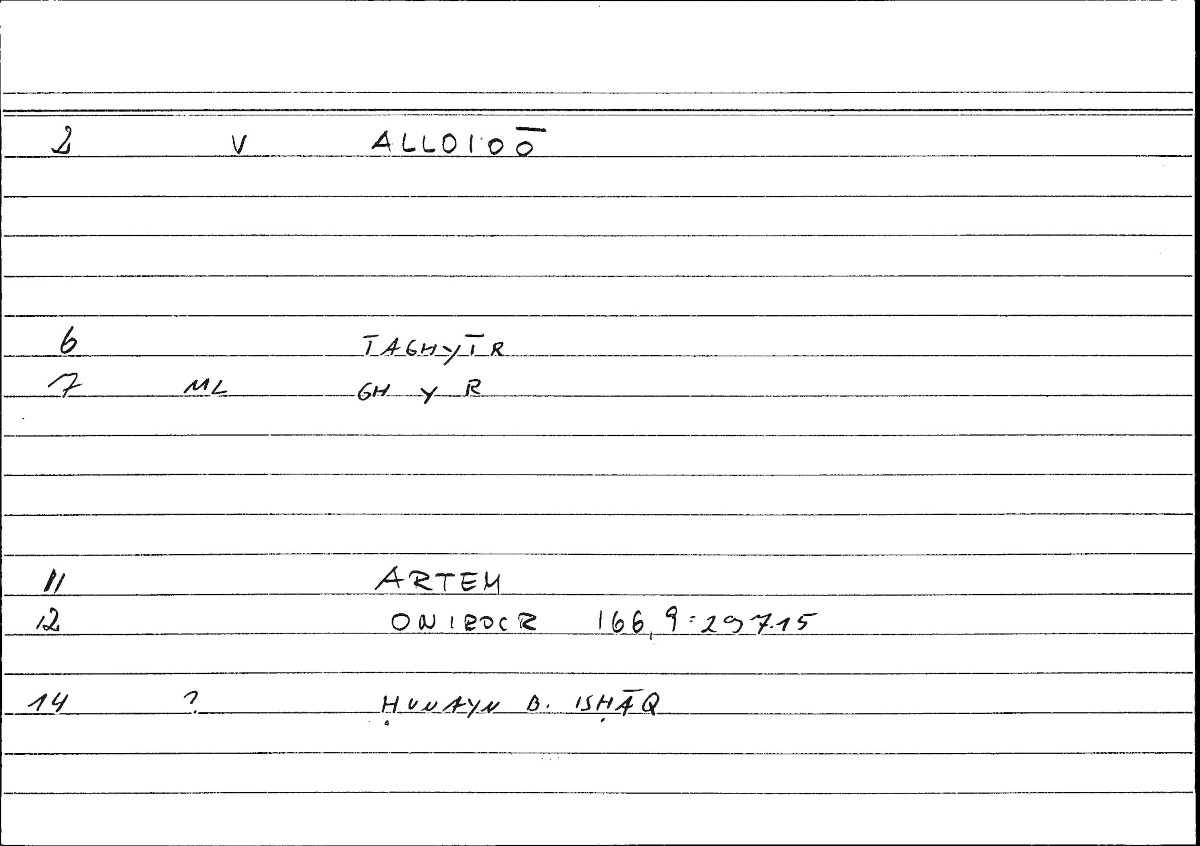 2 V ALLOIOŌ
6 TAGHYĪR
7 ML GH Y R
11 ARTEM
12 ONIROCR 166,9:297.15
14 ? ḤUNAYN B. ISḤĀQ